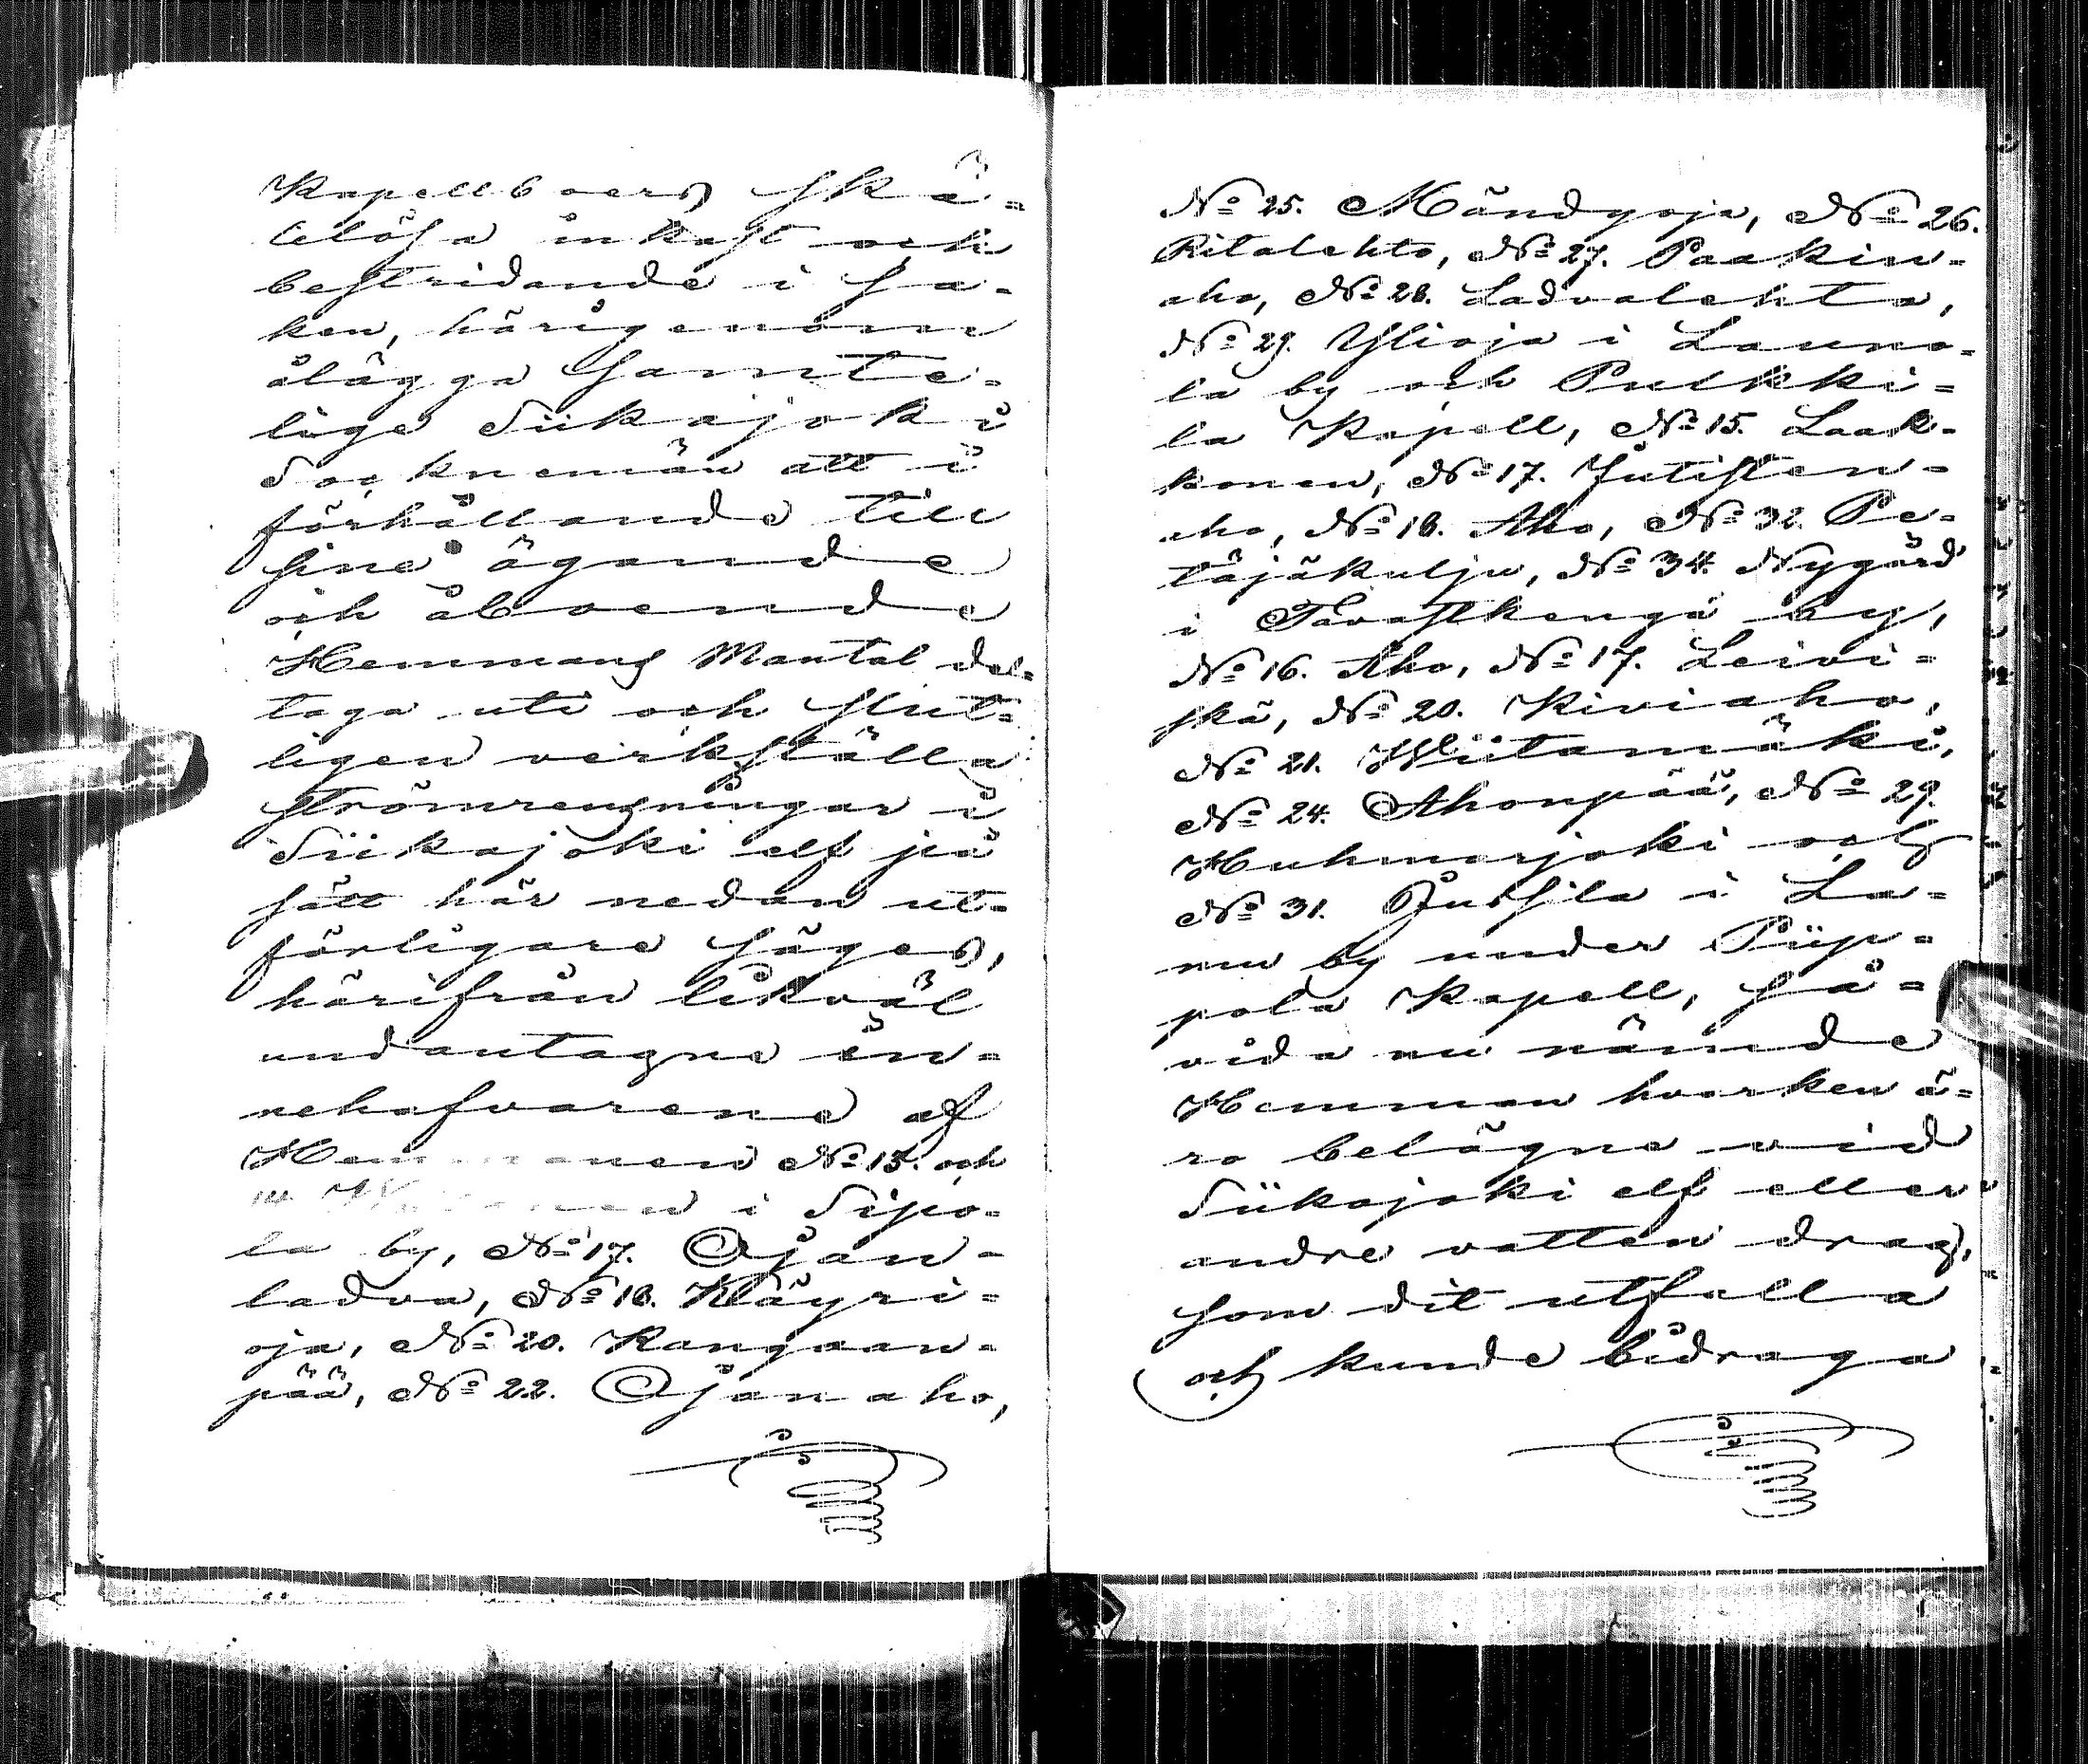 Kapellboers skä-
lelösa inkast och
bestridande i sa-
ken, härigenom
ålägga samte-
lige Siikajoki
Socknemän att i
förhållande till
sine ägande
och åboende
Hemmans Mantal del-
taga uti och slut-
ligen verkställa
strömrensningar i
Siikajoki elf på
sätt här nedan ut-
förligare säges,
härifrån likväl
undantagne in-
nehafvarene af
Hemmanen No 13. och
14. i Sipo-
la by, No 17. Ojan-
ladva, No 18. Kläyri-
oja, No 20. Kangaan-
pää, No 22. Ojanaho,
No 25. Mändyoja, No 26.
Ritalehto, No 27. Paakin-
aho, No 28. Ladvalehto,
No 29. Ylioja i Launo-
la by och Pulkki-
la Kapell, No 15. Laak-
konen, No 17. Jutisten-
aho, No 18. Aho, No 32. Pe-
täjäkulju, No 34. Nygård
i Tavastkengä by,
No 16. Aho, No 17. Leivi-
skä, No 20. Kiviaho,
No 21. Wiitamäki,
No 24. Ahonpää, No 29.
Huhmarjoki och
No 31. Jussila i La-
mu by under Piip-
pola Kapell, så-
vida nu nämde
Hemman hvarken ä-
ro belägne vid
Siikajoki elf eller
andre vatten drag,
som dit utfalla
och kunde bidraga